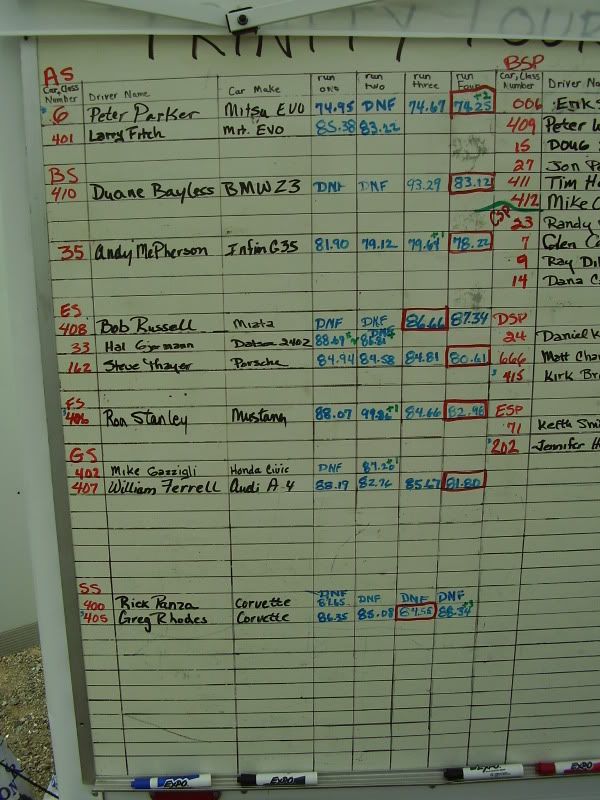 TRINITY TOUR
AS BSP
Car, Class Number Driver Name Car Make run one run two run three run Four Car, Class Number Driver Na
6 Peter Parker Mitsu EVO 74.95 DNF 74.67 74.25 +2 006 Erik
401 Larry Fitch Mit. EVO 85.38 83.22 409 Peter W
15 Doug
BS 27 Jon Pa
410 Duane Bayless BMW Z3 DNF DNF 93.29 83.12 411 Tim Ha
412 Mike C
CSP 23 Randy
35 Andy McPherson Infin G35 81.90 79.12 79.64 +1 78.22 7 Glen Co
9 Ray Dil
14 Dana C
ES
408 Bob Russell Miata DNF DNF 86.66 87.34 DSP
33 Hal Datsun 240Z DNF 24 Daniel K
162 Steve Thayer Porsche 84.94 84.58 84.81 80.61 666 Matt Cha
FS 415 Kirk Br
406 Ron Stanley Mustang 88.07 +1 84.66 82.98 ESP
71 Keith Smi
GS 202 Jennifer H
402 Mike Gazzigli Honda Civic DNF 87.20 +1
407 William Ferrell Audi A4 88.19 82.76 85.67 81.80
SS
400 Rick Panza Corvette DNF DNF DNF DNF
405 Greg Rhodes Corvette 86.35 85.08 84.58 88.34 +3
EXPO EXPO EXPO EXPO